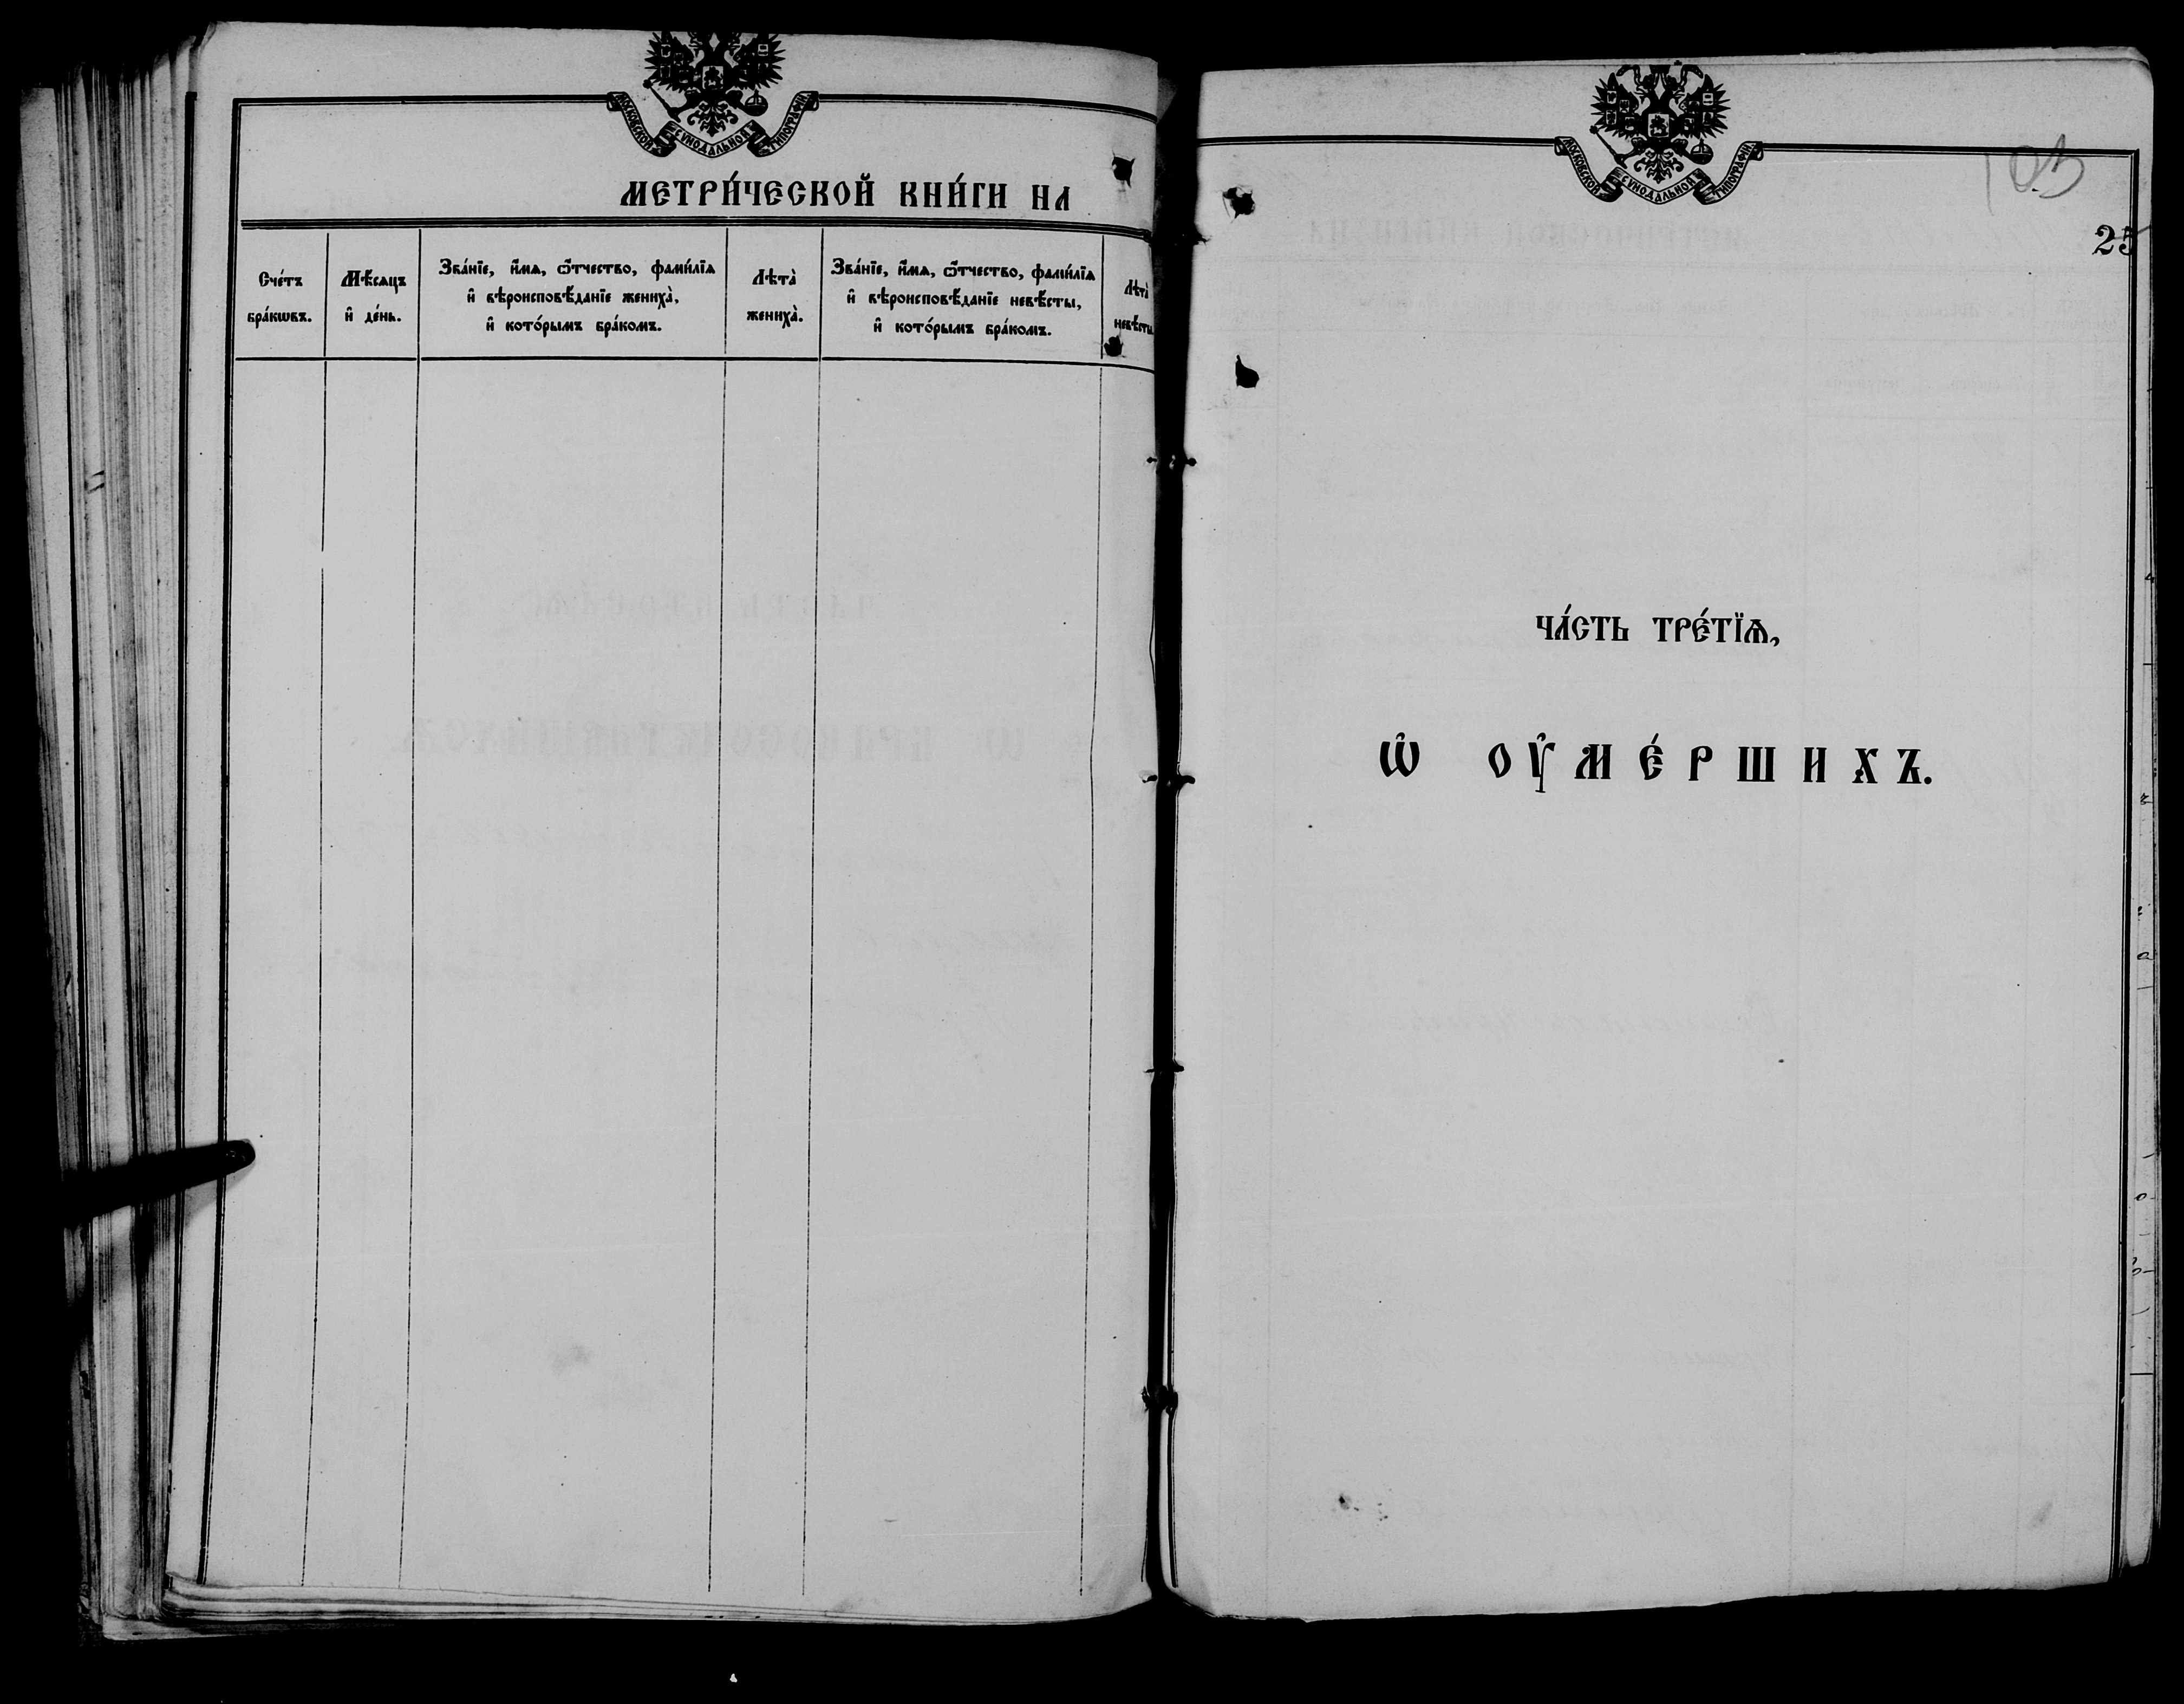 МОСКОВСКОЙ СѴНОДАЛЬНОЙ ТИПОГРАФІИ
МЕТРИ́ЧЕСКОЙ КНИ́ГИ НА
Сче́тъ
бра́кѡвъ.
Мѣ́сяцъ
и҆ де́нь.
Зва́нїе, и҆́мя, ѻ҆́тчество, фами́лїя
и҆ вѣроисповѣ́данїе жениха̀,
и҆ кото́рымъ бра́комъ.
Лѣта̀
жениха̀.
Зва́нїе, и҆́мя, ѻ҆́тчество, фами́лїя
и҆ вѣроисповѣ́данїе невѣ́сты,
и҆ кото́рымъ бра́комъ.
Лѣта̀
невѣ́сты
МОСКОВСКОЙ СѴНОДАЛЬНОЙ ТИПОГРАФІИ
103
25
ЧА́СТЬ ТРЕ́ТЇѦ,
Ѡ҆ ОУ҆МЕ́РШИХЪ.